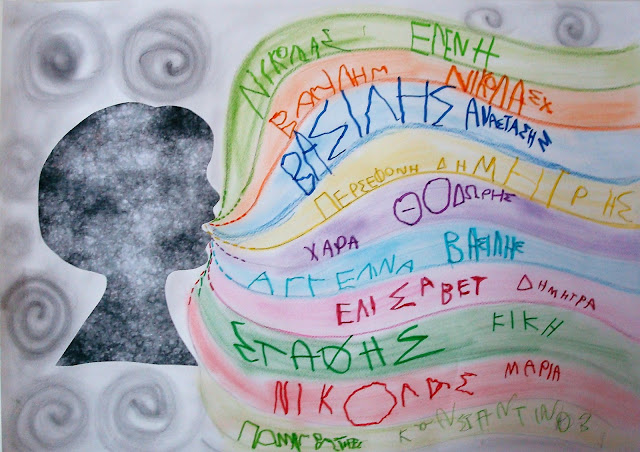 ΝΙΚΟΛΑΣ ΕΛΕΝΗ
ΝΙΚΟΛΑΣ
ΒΑΣΙΛΗΣ ΑΝΑΣΤΑΣΗΣ
ΠΕΡΣΕΦΟΝΗ ΔΗΜΗΤΡΗΣ
ΘΟΔΩΡΗΣ
ΧΑΡΑ
ΑΓΓΕΛΙΝΑ ΒΑΣΙΛΗΣ
ΕΛΙΣΑΒΕΤ ΔΗΜΗΤΡΑ
ΣΤΑΘΗΣ ΚΙΚΗ
ΝΙΚΟΛΑΣ ΜΑΡΙΑ